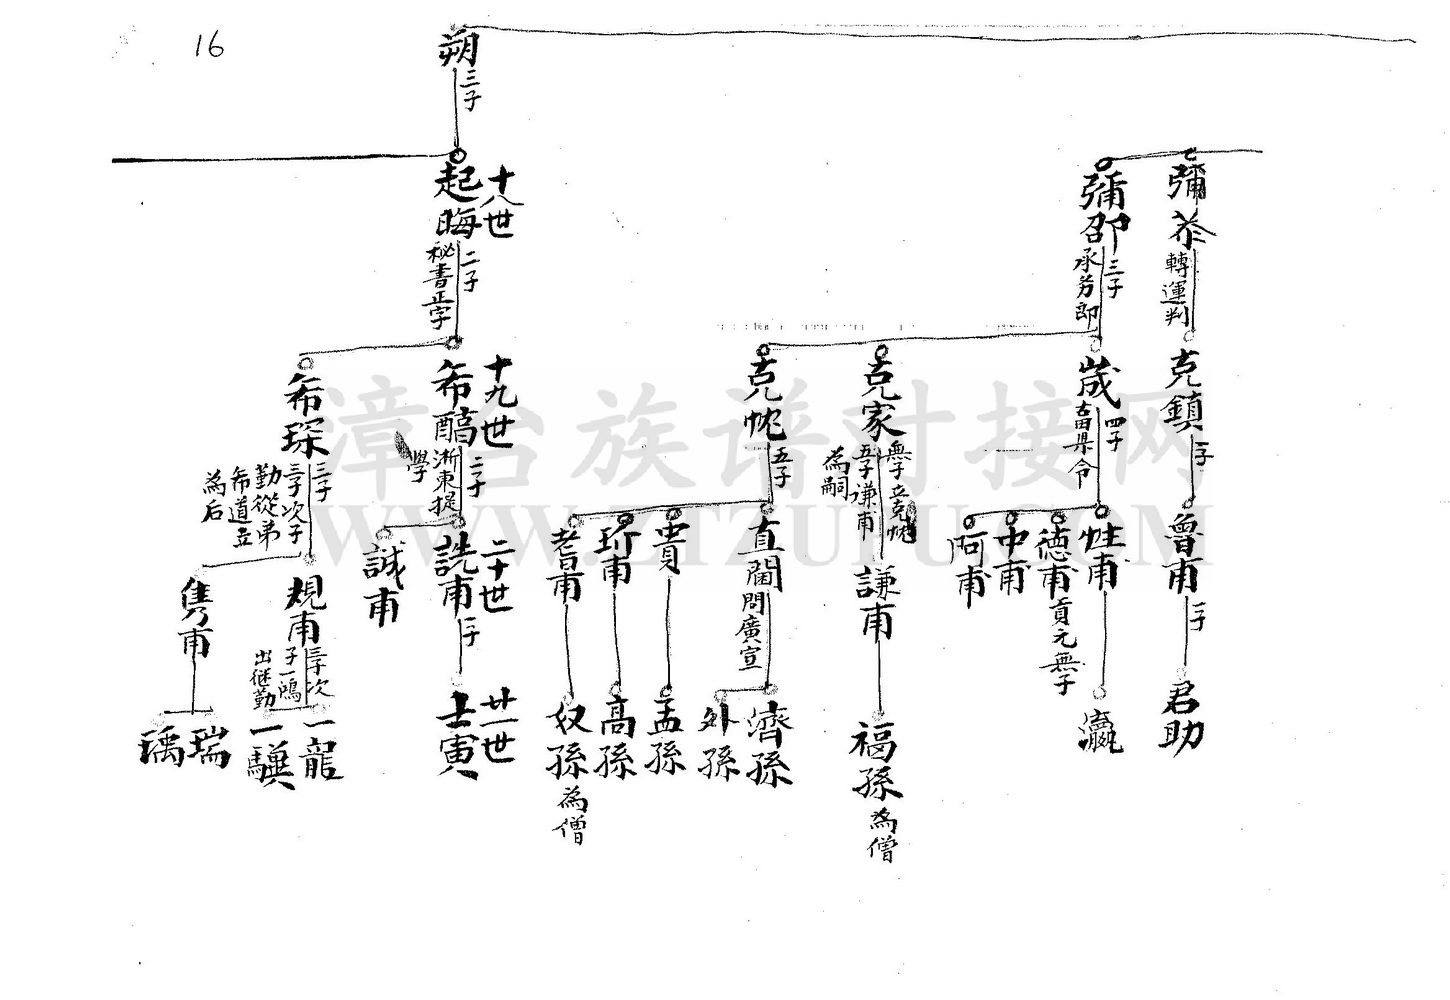 16
彌恭
轉運判
克鎮
二子
魯甫
一子
君助
彌邵
三子
承务郎
崴
四子
古田县令
性甫
瀛
德甫
貢元無子
中甫
阿甫
克家
無子立克忱
五子谦甫
為嗣
謙甫
福孫
為僧
克忱
五子
直閫
問廣宣
濟孫
外孫
貴
孟孫
珩甫
高孫
耆甫
奴孫
為僧
朔
三子
十八世
起晦
二子
秘書正字
十九世
希醕
二子
淅東提
學
二十世
詵甫
一子
廿一世
士寅
誠甫
希琛
三子
三子次子
勤從弟
希道立
為后
規甫
三子次
子一鴻
出继勤
一龍
一驥
雋甫
瑞
瑀
漳台族谱对接网
WWW.ZTZUPU.COM